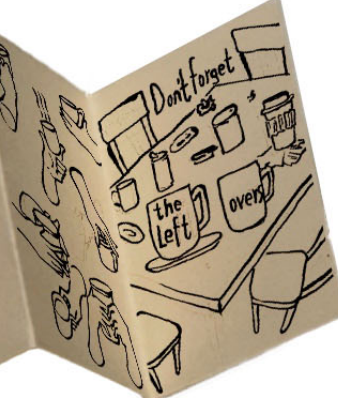 Don't forget
the
Left
overs